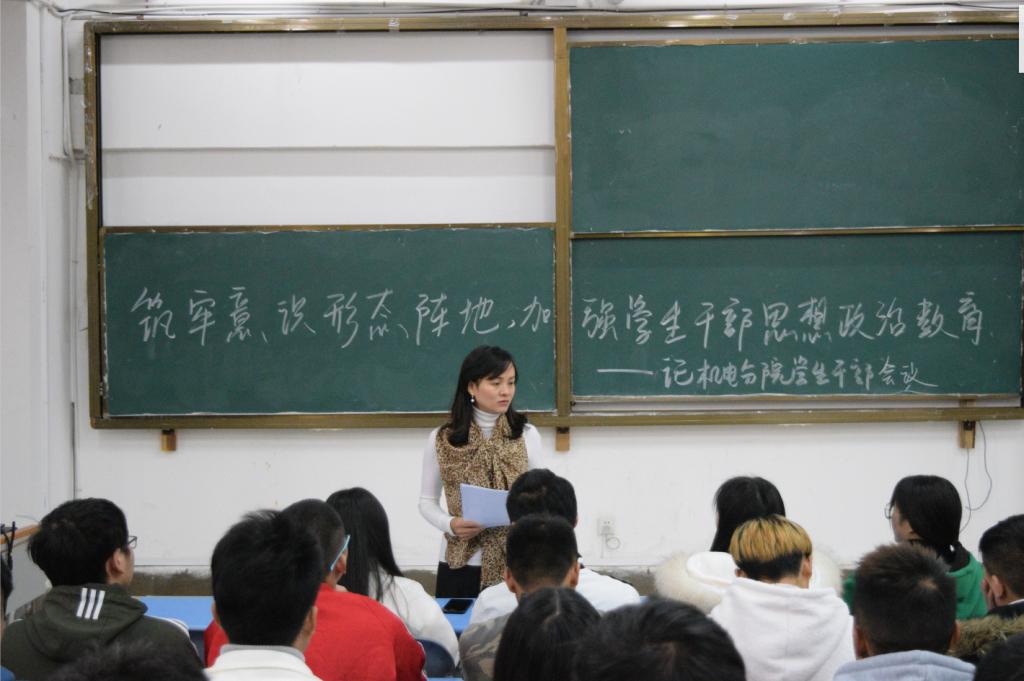 筑牢意识形态阵地,加强学生干部思想政治教育
——记机电分院学生干部会议